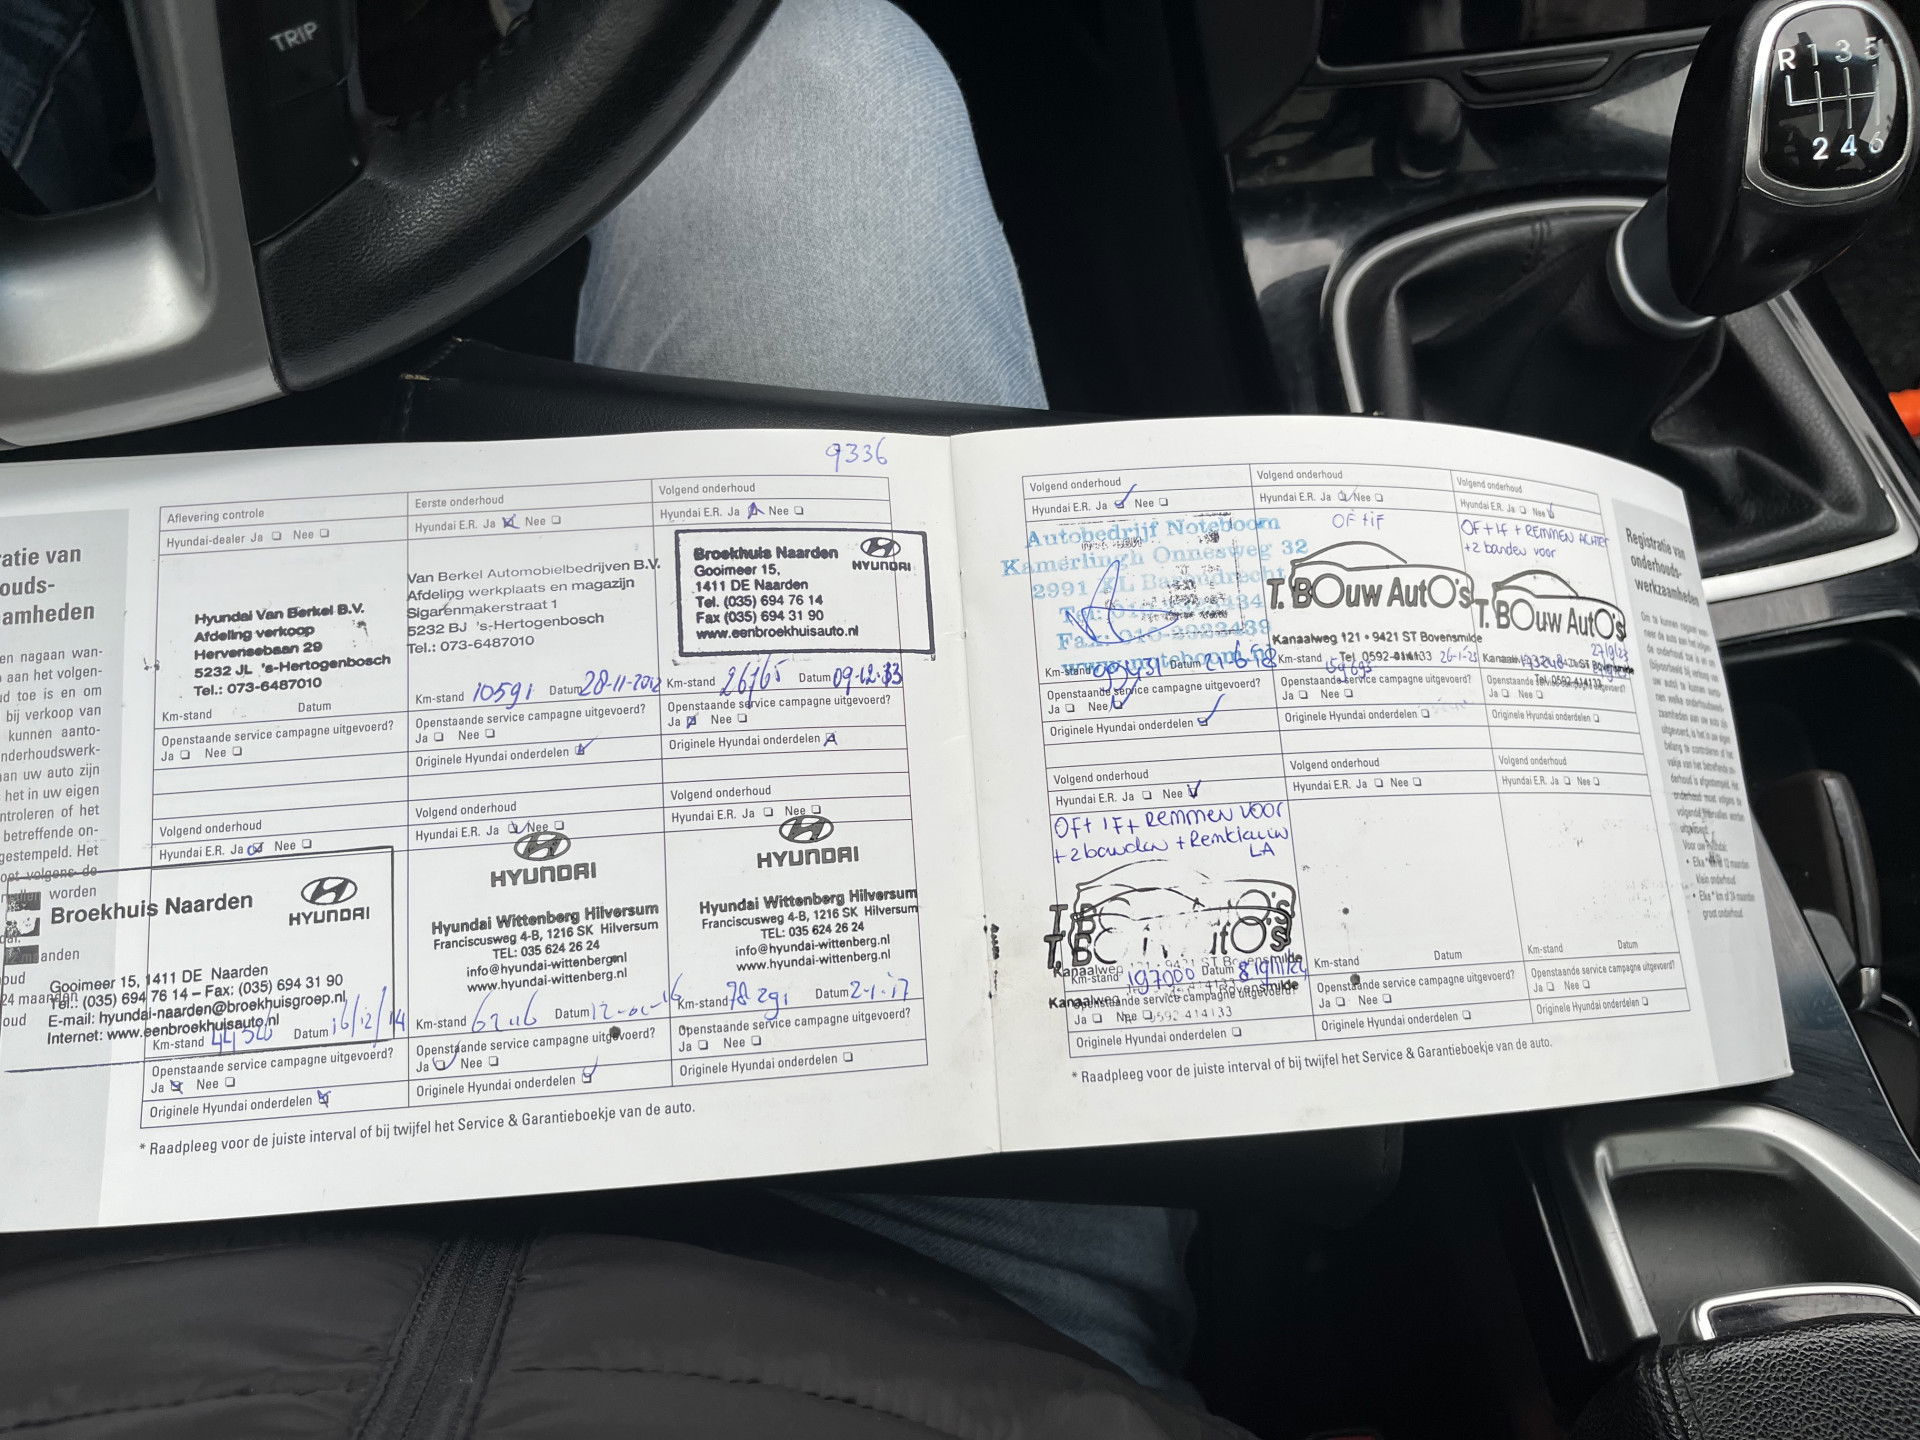 TRIP
R 1 3 5
2 4 6
9336
ratie van
ouds-
amheden
en nagaan wan-
aan het volgen-
ud toe is en om
bij verkoop van
kunnen aanto-
nderhoudswerk-
an uw auto zijn
het in uw eigen
ntroleren of het
betreffende on-
gestempeld. Het
oet volgens de
worden
maanden
oud
24 maanden
oud
Aflevering controle
Hyundai-dealer Ja ❏ Nee ❏
Hyundai Van Berkel B.V.
Afdeling verkoop
Hervensebaan 29
5232 JL 's-Hertogenbosch
Tel.: 073-6487010
Km-stand Datum
Openstaande service campagne uitgevoerd?
Ja ❏ Nee ❏
Eerste onderhoud
Hyundai E.R. Ja Nee ❏
Van Berkel Automobielbedrijven B.V.
Afdeling werkplaats en magazijn
Sigarenmakerstraat 1
5232 BJ 's-Hertogenbosch
Tel.: 073-6487010
Km-stand 10591 Datum 28-11-2012
Openstaande service campagne uitgevoerd?
Ja ❏ Nee ❏
Originele Hyundai onderdelen
Volgend onderhoud
Hyundai E.R. Ja Nee ❏
Broekhuis Naarden
HYUNDAI
Gooimeer 15,
1411 DE Naarden
Tel. (035) 694 76 14
Fax (035) 694 31 90
www.eenbroekhuisauto.nl
Km-stand 26165 Datum 09-12-13
Openstaande service campagne uitgevoerd?
Ja Nee ❏
Originele Hyundai onderdelen
Volgend onderhoud
Hyundai E.R. Ja Nee ❏
Broekhuis Naarden
HYUNDAI
Gooimeer 15, 1411 DE Naarden
Tel.: (035) 694 76 14 – Fax: (035) 694 31 90
E-mail: hyundai-naarden@broekhuisgroep.nl
Internet: www.eenbroekhuisauto.nl
Km-stand Datum 16/12/14
Openstaande service campagne uitgevoerd?
Ja Nee ❏
Originele Hyundai onderdelen
Volgend onderhoud
Hyundai E.R. Ja Nee ❏
HYUNDAI
Hyundai Wittenberg Hilversum
Franciscusweg 4-B, 1216 SK Hilversum
TEL: 035 624 26 24
info@hyundai-wittenberg.nl
www.hyundai-wittenberg.nl
Km-stand Datum
Openstaande service campagne uitgevoerd?
Ja Nee ❏
Originele Hyundai onderdelen
Volgend onderhoud
Hyundai E.R. Ja ❏ Nee ❏
HYUNDAI
Hyundai Wittenberg Hilversum
Franciscusweg 4-B, 1216 SK Hilversum
TEL: 035 624 26 24
info@hyundai-wittenberg.nl
www.hyundai-wittenberg.nl
Km-stand 78291 Datum 2-1-17
Openstaande service campagne uitgevoerd?
Ja ❏ Nee ❏
Originele Hyundai onderdelen ❏
* Raadpleeg voor de juiste interval of bij twijfel het Service & Garantieboekje van de auto.
Volgend onderhoud
Hyundai E.R. Ja Nee ❏
Autobedrijf Noteboom
Kamerlingh Onnesweg 32
2991 XL Barendrecht
Km-stand Datum
Openstaande service campagne uitgevoerd?
Ja ❏ Nee
Originele Hyundai onderdelen
Volgend onderhoud
Hyundai E.R. Ja Nee ❏
OF + IF
T. BOuw AutO's
Kanaalweg 121 • 9421 ST Bovensmilde
Tel. 0592-414133
Km-stand 26-1-23
Openstaande service campagne uitgevoerd?
Ja ❏ Nee ❏
Originele Hyundai onderdelen ❏
Volgend onderhoud
Hyundai E.R. Ja ❏ Nee
OF + IF + REMMEN ACHTER
+ 2 banden voor
T. BOuw AutO's
27/9/23
Tel. 0592-414133
Ja ❏ Nee ❏
Originele Hyundai onderdelen ❏
Volgend onderhoud
Hyundai E.R. Ja ❏ Nee
OF + IF + REMMEN VOOR
+ 2 banden + Remklauw
LA
Kanaalweg
Km-stand 197000 Datum
Openstaande service campagne uitgevoerd?
Ja ❏ Nee ❏ 0592 414133
Originele Hyundai onderdelen ❏
Volgend onderhoud
Hyundai E.R. Ja ❏ Nee ❏
Km-stand Datum
Openstaande service campagne uitgevoerd?
Ja ❏ Nee ❏
Originele Hyundai onderdelen ❏
Volgend onderhoud
Hyundai E.R. Ja ❏ Nee ❏
Km-stand Datum
Openstaande service campagne uitgevoerd?
Ja ❏ Nee ❏
Originele Hyundai onderdelen ❏
* Raadpleeg voor de juiste interval of bij twijfel het Service & Garantieboekje van de auto.
Registratie van
onderhouds-
werkzaamheden